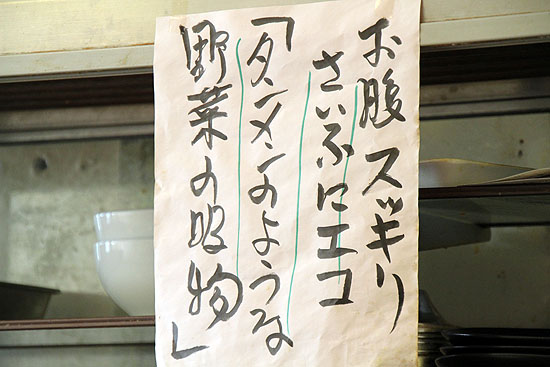 お腹スッキリ
さいふにエコ
「タンメンのような
野菜の吸物」